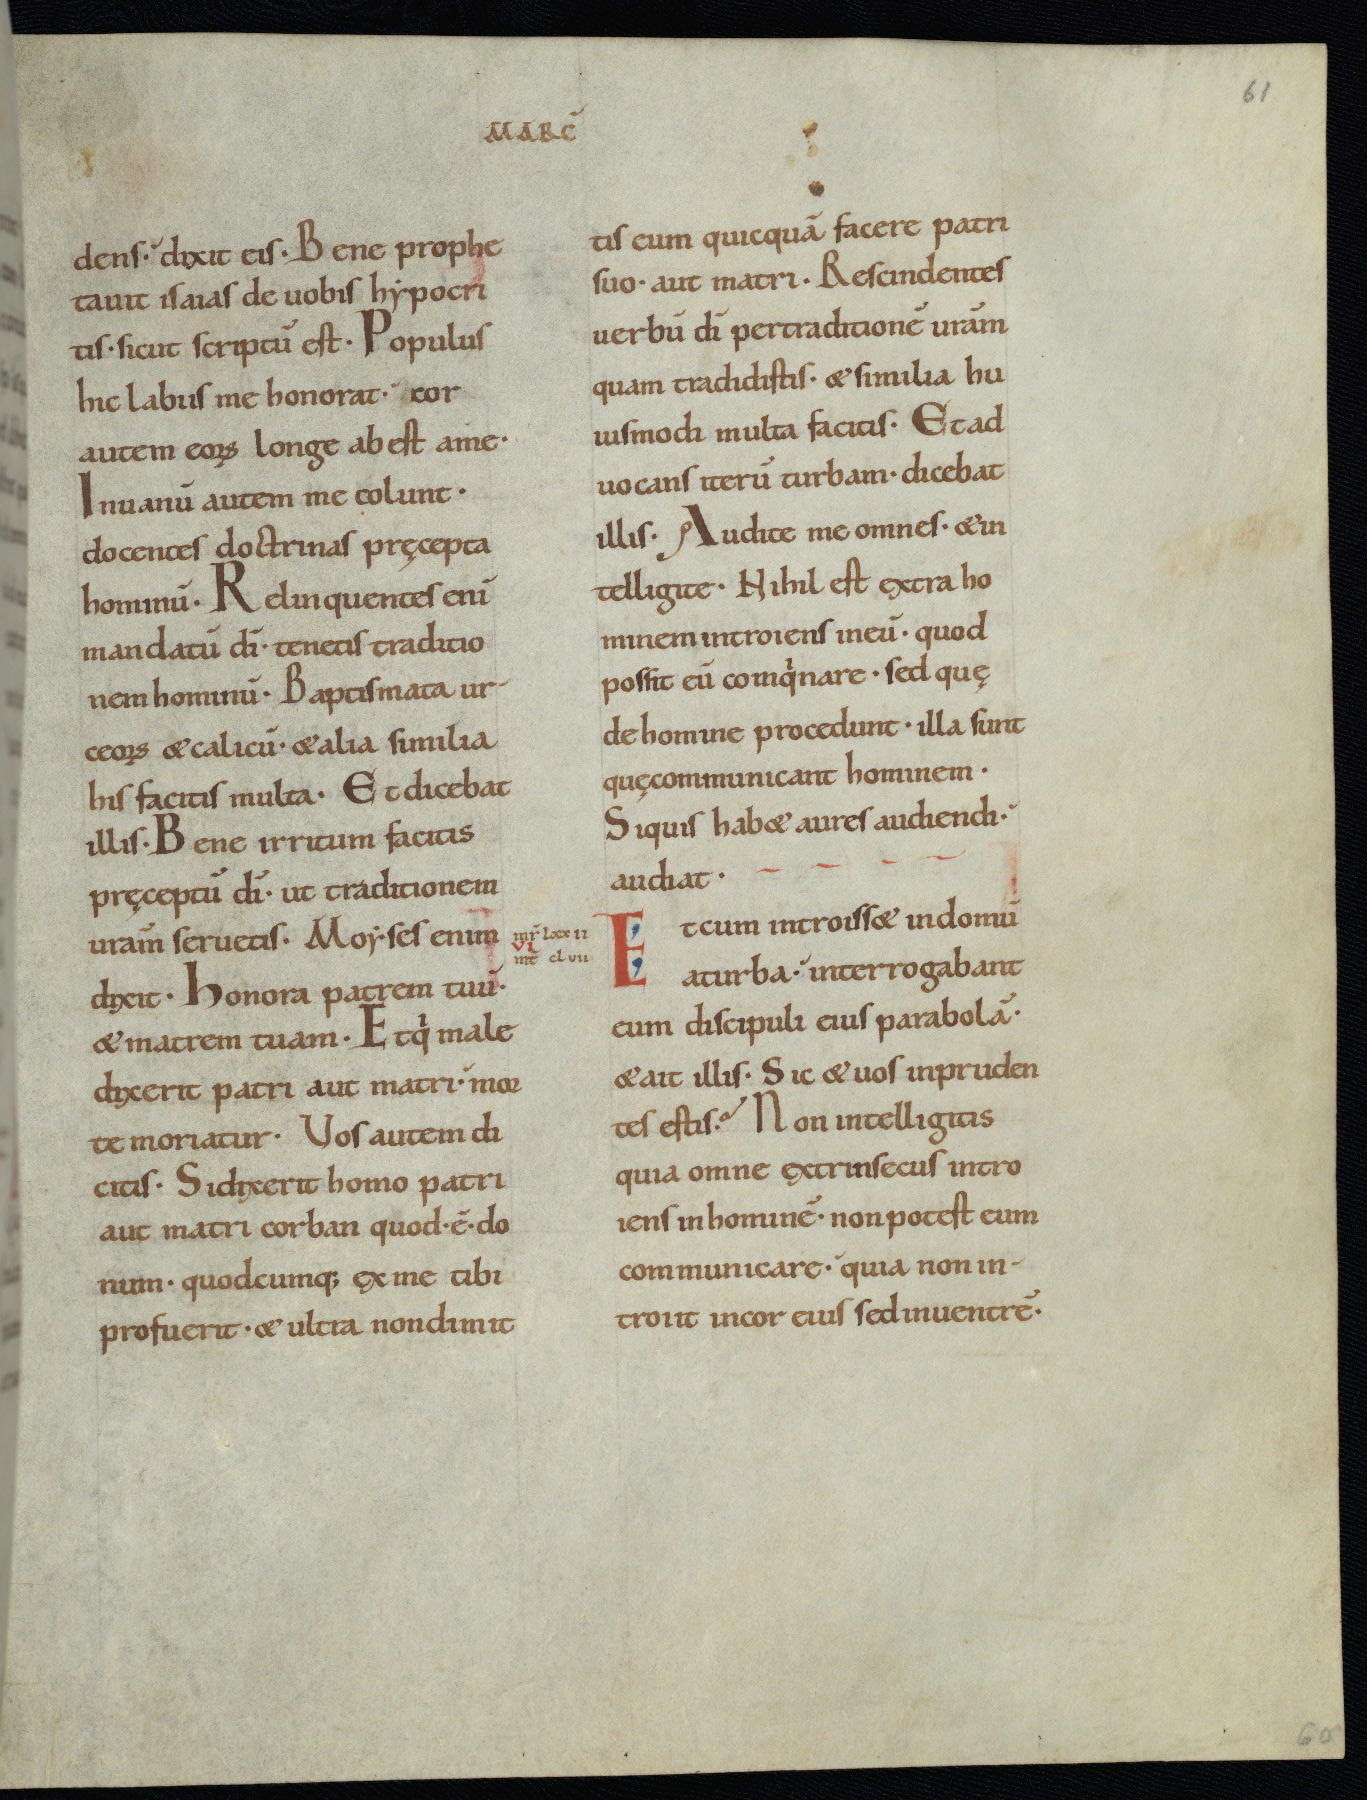 61
MARC̄
dens·̆ dixit eis· Bene prophe
tauit isaias de uobis hẏpocri
tis· sicut scriptū est· Populus
hic labiis me honorat·̆ cor
autem eoꝝ longe ab est a me·
Inuanū autem me colunt·
docentes doctrinas pręcepta
hominū· Relinquentes enī
mandatū dī· tenetis traditio
nem hominū· Baptismata ur-
ceoꝝ & calicū· & alia similia
his facitis multa· Et dicebat
illis· Bene irritum facitis
pręceptū dī· ut traditionem
urām seruetis· Moẏses enim
dixit· Honora patrem tuū·
& matrem tuam· Et qͥ male
dixerit patri aut matri·̆ mor
te moriatur· Uos autem di
citis· Si dixerit homo patri
aut matri corban quod·ē·do
num· quodcumq; ęx me tibi
profuerit· & ultra non dimit
tis eum quicquā facere patri
suo· aut matri· Rescindentes
uerbū dī per traditionē urām
quam tradidistis· & similia hu
iusmodi multa facitis· Et ad
uocans iterū turbam· dicebat
illis· Audite me omnes· & in
telligite· Nihil est extra ho
minem introiens in eū· quod
possit eū coinqͥnare· sed quę
de homine procedunt· illa sunt
quę communicant hominem·
Siquis hab& aures audiendi·̆
audiat·
mr̄ lxxii
VI
mt̄ clvii
Et cum introiss& in domū
a turba·̆ interrogabant
eum discipuli eius parabolā·
& ait illis· Sic & uos inpruden
tes estis? Non intelligitis
quia omne ęxtrinsecus intro
iens in hominē· non potest eum
communicare·̆ quia non in-
troiit in cor eius sed in uentrē·
60